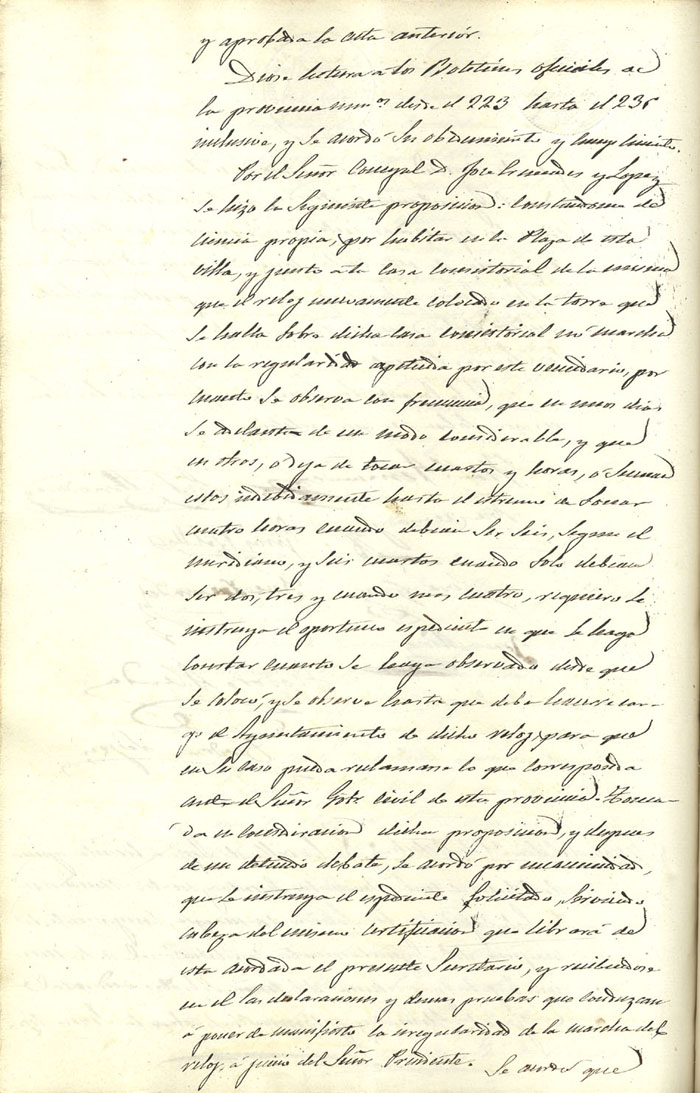 y aprobada la acta anterior.
Diose lectura a los Boletines oficiales de
la provincia num.os desde el 223 hasta el 236
inclusive, y se acordó su obedecimiento y cumplimiento.
Por el Señor Concejal D. Jose Lopez
se hizo la siguiente proposicion: Constandome de
ciencia propia, por habitar en la Plaza de esta
villa, y junto a la casa consistorial de la misma
que el reloj nuevamente colocado en la torre que
se halla sobre dicha casa consistorial no marcha
con la regularidad apetecida por este vecindario, por
cuanto se observa con frecuencia, que en unos dias
se adelanta de un modo considerable, y que
en otros, ó deja de tocar cuartos y horas, ó suenan
estos indebidamente hasta el estremo de sonar
cuatro horas cuando debian ser seis, segun el
meridiano, y seis cuartos cuando solo debian
ser dos, tres y cuando mas cuatro, requiero se
instruya el oportuno espediente en que se haga
constar cuanto se haya observado desde que
se colocó, y se observe hasta que deba hacerse car-
go el Ayuntamiento de dicho reloj, para que
en su caso pueda reclamarse lo que corresponda
ante el Señor Gobr Civil de esta provincia. Toma-
da en consideracion dicha proposicion, y despues
de un detenido debate, se acordó por unanimidad,
que se instruya el espediente solicitado, sirviendo
cabeza del mismo certificacion que librará de
esta acordada el presente Secretario, y reciviendose
en el las declaraciones y demas pruebas que conduzcan
á poner de manifiesto la irregularidad de la marcha del
reloj, á juicio del Señor Presidente. Se acordó que